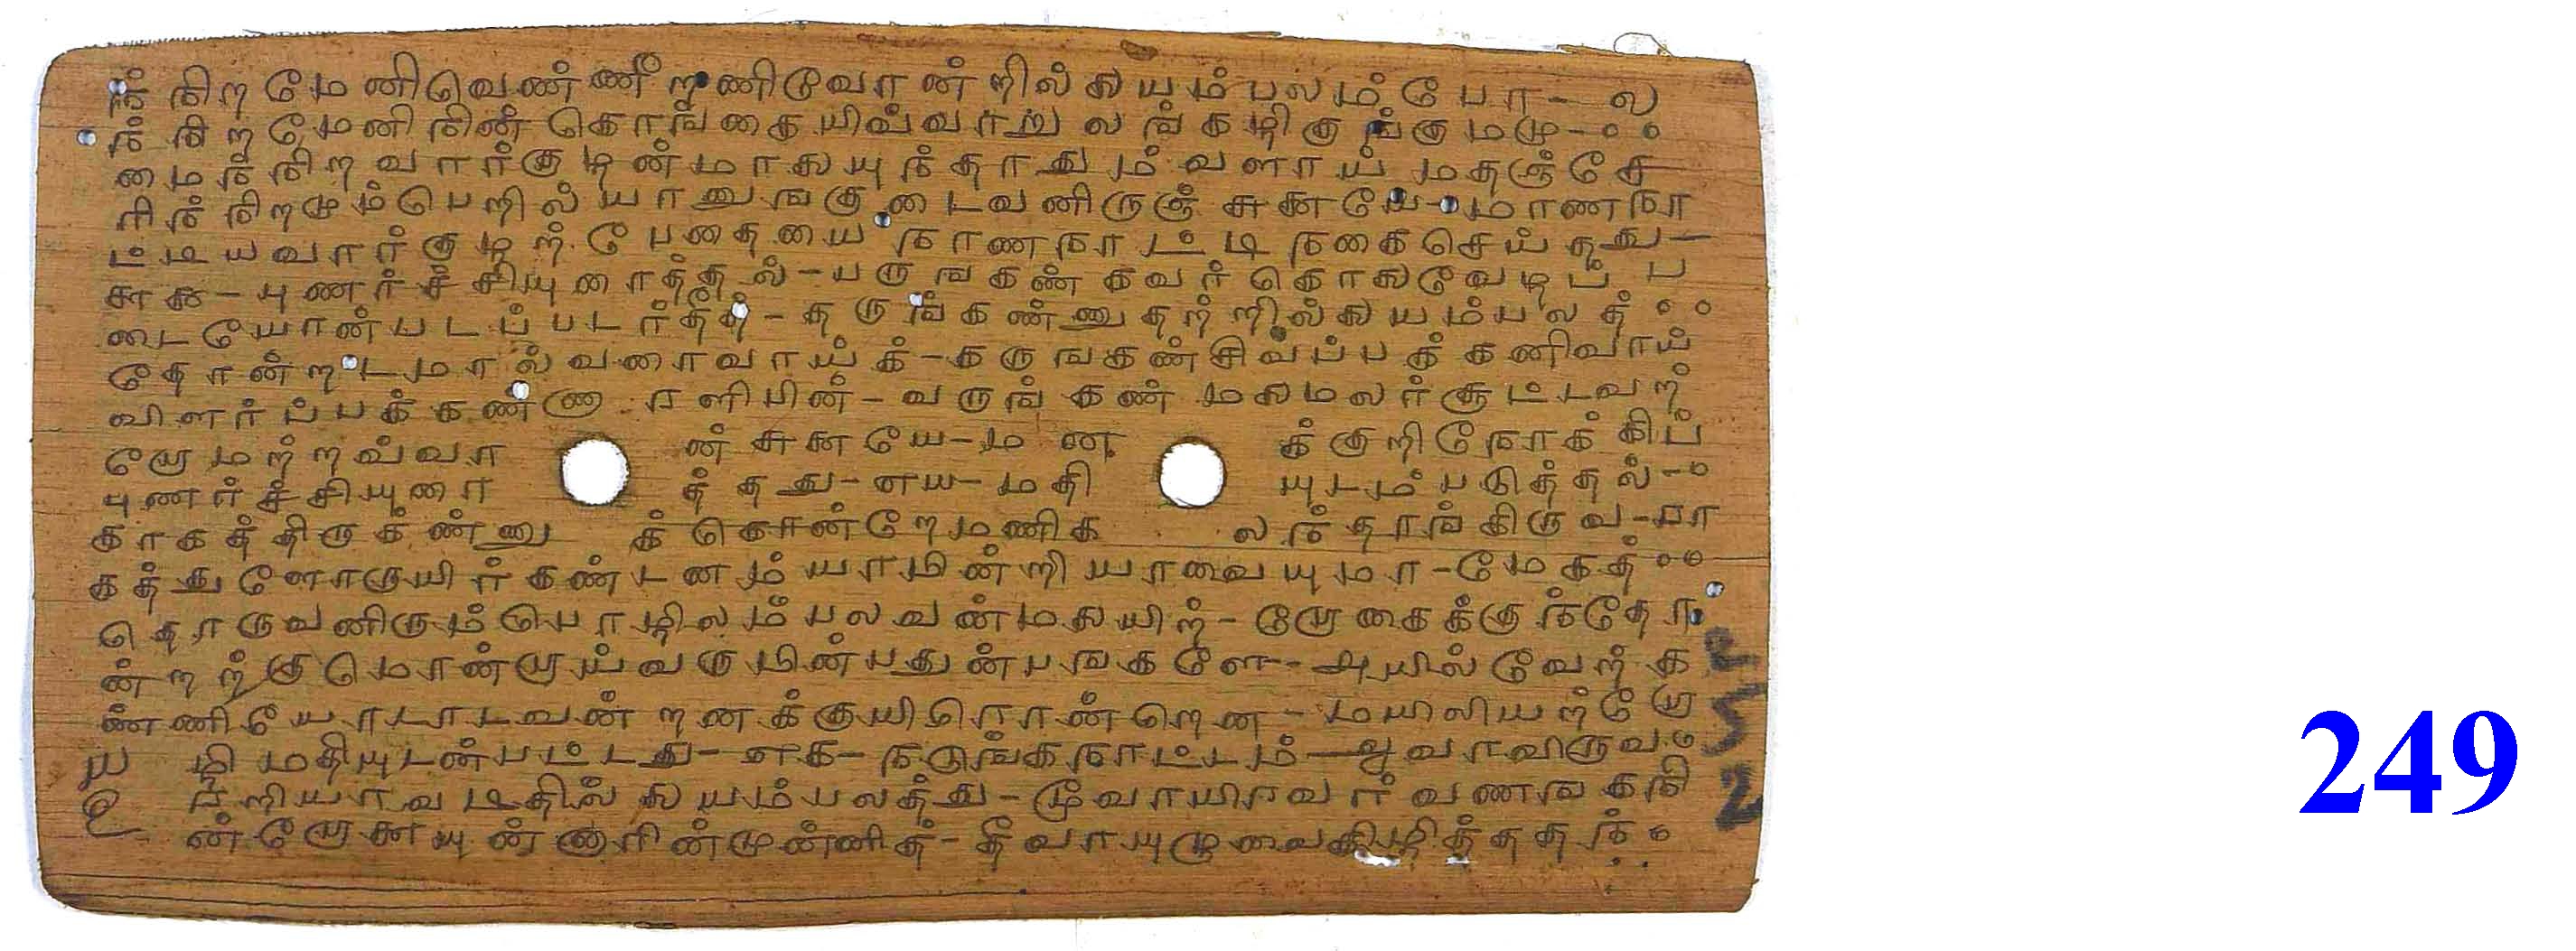 ந் நிறமேனிவெண்ணீறணிவோன்றில்லையம்பலம்போ-ல
ந் நிறமேனிநின் கொங்கையிவ்வாறு லங்கழிகுங்குமமு-
மைந்நிறவார்குழன்மாலையுந்தாதும் வளாய் மதஞ்சே
ரிந்நிறமும்பெறில்யானுஙகுடைவனிருஞ் சுனையே-மாணநா
ட்டியவார்குழற் பேதையை நாணநாட்டி நகைசெய்தது-
சுனை-புணர்ச்சியுரைத்தல்-பருஙகண் கவர்கொலைவேழப்ப
டையோன்படப்படர்தீத்-தருங்கண்ணுதற்றில்லையம்பலத்
தோன்றடமால்வரைவாய்க்-கருஙகண்சிவப்பக்கனிவாய்
விளர்ப்பக்கண்ணாரளிபின்-வருங்கண் மலைமலர்சூட்டவற்
றோமற்றவ்வா ன் சுனையே-மன க்குறிநோக்கிப்
புணர்ச்சியுரை த்தது-எய-மதி யுடம்படுத்தல்-
காகத்திருகண்ணு க்கொன்றேமணிக லந்தாங்கிருவ-ரா
கத்துளோருயிர்கண்டனம்யாமின்றியாவையுமா-மேகத்
தொருவனிரும்பொழிலம்பலவன்மலையிற்-றோகைக்குந்தோ
ன்றற்குமொன்றாய்வருமின்பதுன்பஙகளே-அயில்வேற்க
ண்ணியோடாடவன்றனக்குயிரொன்றென-மயிலியற்றோ
ய ழிமதியுடன்பட்டது-எக-நடுங்கநாட்டம்-ஆவாவிருவ
உ ரறியாவடிதில்லையம்பலத்து-மூவாயிரவர் வணஙகநி
ன்றோனையுன்னாரின்முன்னித்-தீவாயுழுவைகிழித்ததந்
252
249